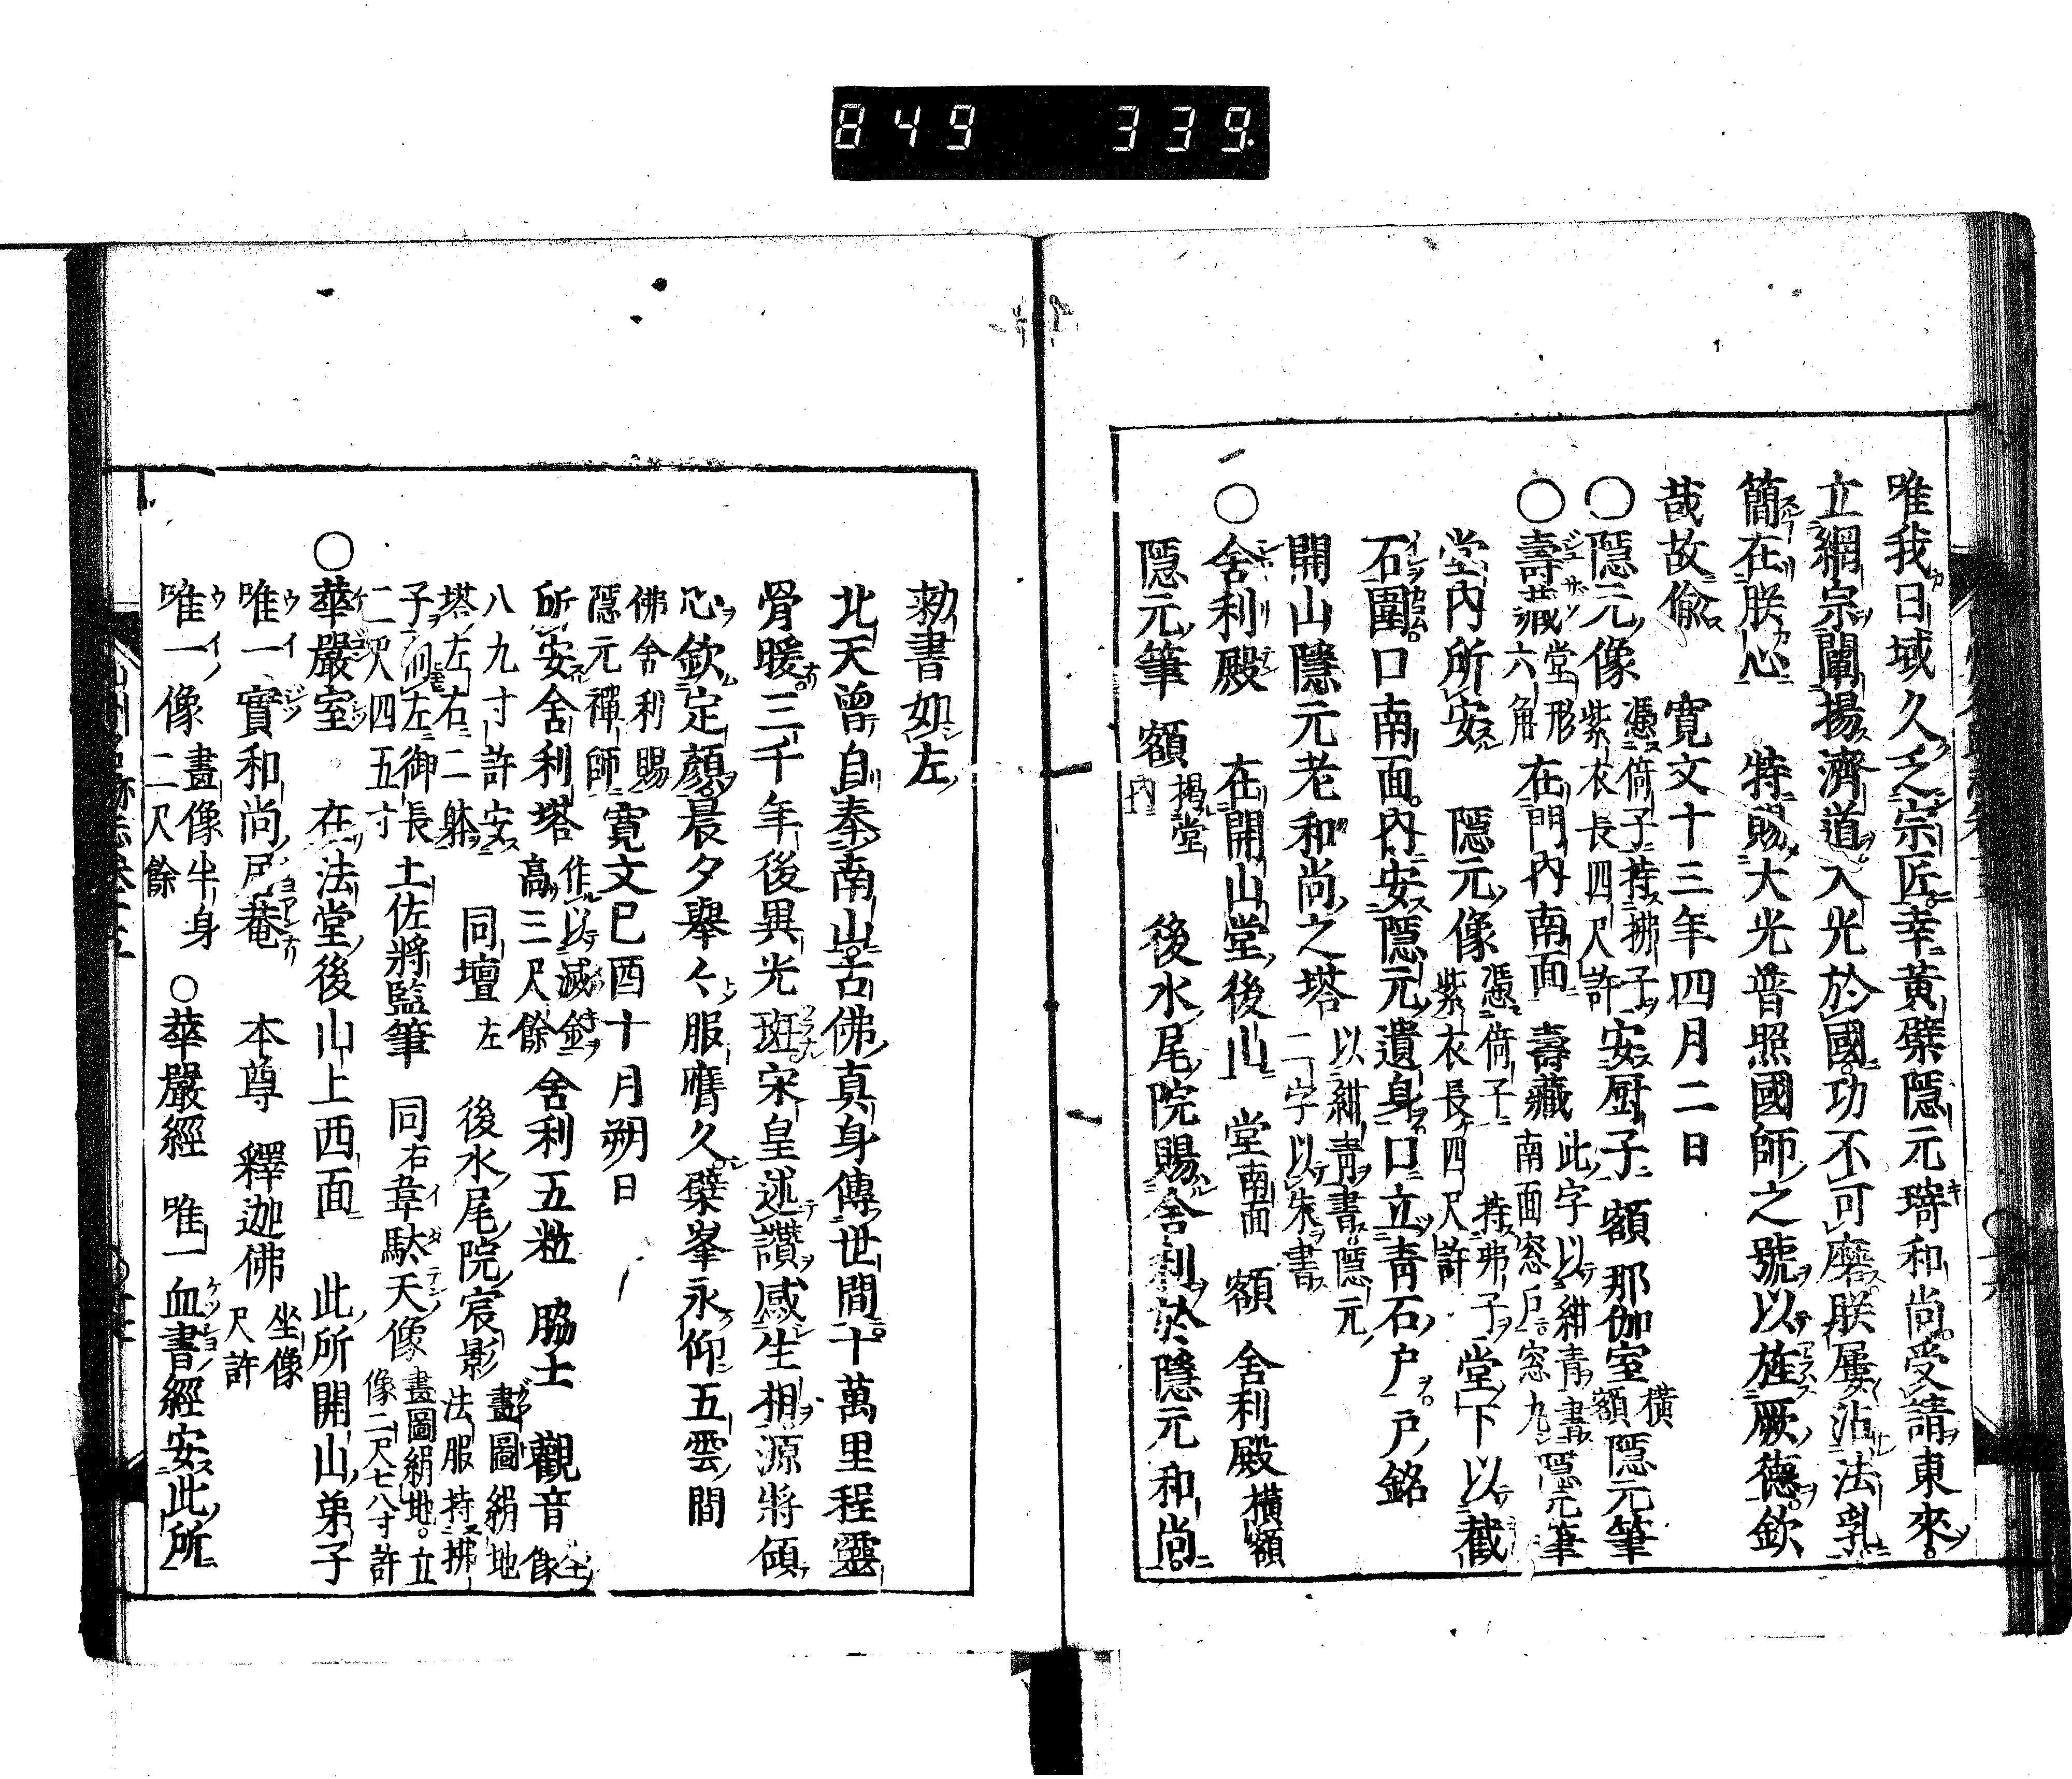 849 339.
唯我日域久乏宗匠幸黃檗隱元琦和尚受請東來
立綱宗闡揚濟道入光於國功不可磨朕屢沾法乳
簡在朕心 特賜大光普照國師之號以旌厥德欽
哉故偸 寬文十三年四月二日
○隱元像 憑倚子持拂子
紫衣長四尺許 安厨子 額 那伽室 橫額 隱元筆
○壽藏 堂形六角 在門內南面 壽藏 此字以紺青書隱元筆
南面窓戶窓九
堂內所安 隱元像 憑倚子 持弗子
紫衣長四尺許 堂下以截
石圍口南面內安隱元遺身口立靑石戶戶銘
開山隱元老和尚之塔 以紺靑書隱元
二字以朱書
○舍利殿 在開山堂後山 堂南面 額 舍利殿 橫額
隱元筆 額 揭堂內 後水尾院賜舍利於隱元和尚
勅書如左
北天曾自奉南山古佛真身傳世間十萬里程靈
骨暖三千年後異光斑宋皇述讚感生相源將傾
心欽定顏晨夕擧々服膺久檗峯永仰五雲間
佛舍利賜
隱元禪師 寬文己酉十月朔日
所安舍利塔 作以滅金
高三尺餘 舍利五粒 脇士 觀音 坐像
八九寸許安
塔左右二躰 同壇左 後水尾院宸影 畫圖絹地
法服持拂
子而左御長
二尺四五寸 土佐將監筆 同右韋駄天像 畫圖絹地立
像二尺七八寸許
○華嚴室 在法堂後山上西面 此所開山弟子
唯一實和尚居菴 本尊 釋迦佛 坐像
尺許
唯一像 畫像半身
二尺餘 ○華嚴經 唯一血書經安此所